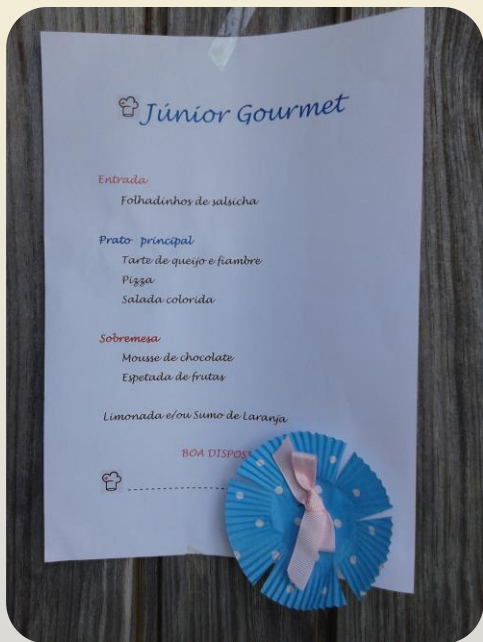 Júnior Gourmet
Entrada
Folhadinhos de salsicha
Prato principal
Tarte de queijo e fiambre
Pizza
Salada colorida
Sobremesa
Mousse de chocolate
Espetada de frutas
Limonada e/ou Sumo de Laranja
BOA